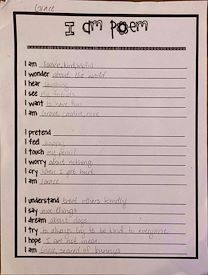 Grace
I am poem
I am brave, kind, joyful
I wonder about the world
I hear
I see my friends
I want to have fun
I am brave,
I pretend
I feel happy
I touch my pencil
I worry about nothing
I cry when I get hurt
I am Grace
I understand treat others kindly
I say nice things
I dream about dogs
I try to always try to be kind to everyone
I hope I am not mean
I am brave, scared of bunnys